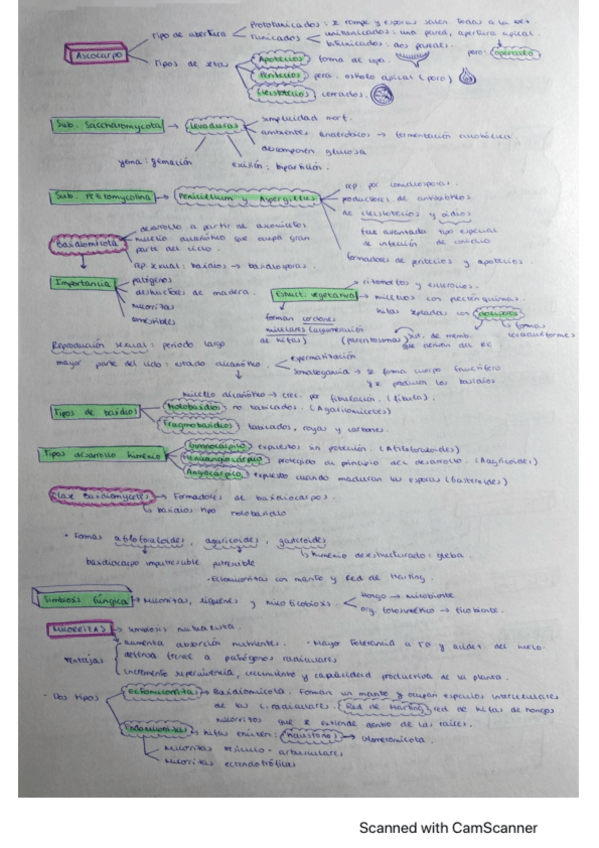 Ascocarpo
Tipo de apertura
Prototunicados: se rompe y esporas salen
Tunicados
unitunicados: una pared, apertura apical.
bitunicados: dos paredes.
Tipos de setas
Apotecios forma de copa.
Peritecios pera: ostiolo apical (poro)
Cleistotecios cerrados.
poro: opérculo
Sub. Saccharomycota → Levaduras
simplicidad morf.
ambientes anaerobios → fermentación alcohólica
descomponen glucosa
yema: gemación
escisión: bipartición.
Sub. Pezizomycotina → Penicillium y Aspergillus
rep. por conidiosporas.
productores de antibióticos
formadores de peritecios y apotecios
Basidiomicota
desarrollo a partir de
micelio dicariótico que ocupa gran
parte del ciclo.
rep. sexual: basidios → basidiosporas.
Importancia
patógenos
destructores de madera.
micorrizas
comestibles
Estruct. vegetativa
micelios con
hifas septadas con
forman cordones
miceliares (aglomeración
de hifas)
Reproducción sexual: periodo largo
mayor parte del ciclo: estado dicariótico.
espermatización
somatogamia → se forma cuerpo fructífero
y se producen los basidios
micelio dicariótico → crec. por fibulación. (fíbula).
Tipos de basidios
Holobasidios no tabicados. (Agaricomicetes)
Fragmobasidios tabicados, royas y carbones.
Tipos desarrollo himenio
Gimnocárpico expuestos sin protección. (Afiloforoides)
Hemiangiocárpico protegido al principio del desarrollo. (Agaricoides)
Angiocárpico expuesto cuando maduran las esporas (Gasteroides)
Clase Basidiomycetes → Formadores de basidiocarpos.
↳ basidios tipo holobasidio
· Formas afiloforoides, agaricoides, gasteroides
basidiocarpo imputrescible putrescible
↳ himenio desestructurado: gleba.
· Ectomicorrizas con manto y Red de Harting.
Simbiosis fúngica → Micorrizas, líquenes y micoficobiosis.
Hongo → micobionte
org. fotosintético → ficobionte.
MICORRIZAS → simbiosis mutualista.
ventajas
aumenta absorción nutrientes. · Mayor tolerancia a Tª y acidez del suelo.
defensa frente a patógenos radiculares
incremento supervivencia, crecimiento y capacidad productiva de la planta.
- Dos tipos
Ectomicorrizas → Basidiomicota. Forman un manto y ocupan espacios intercelulares
de las c. radiculares. Red de Harting red de hifas de hongos
micorrizos que se extiende dentro de las raíces.
Endomicorrizas → hifas emiten: haustorios → Glomeromicota.
Micorrizas vesículo-arbusculares
Micorrizas ectendotróficas
Scanned with CamScanner